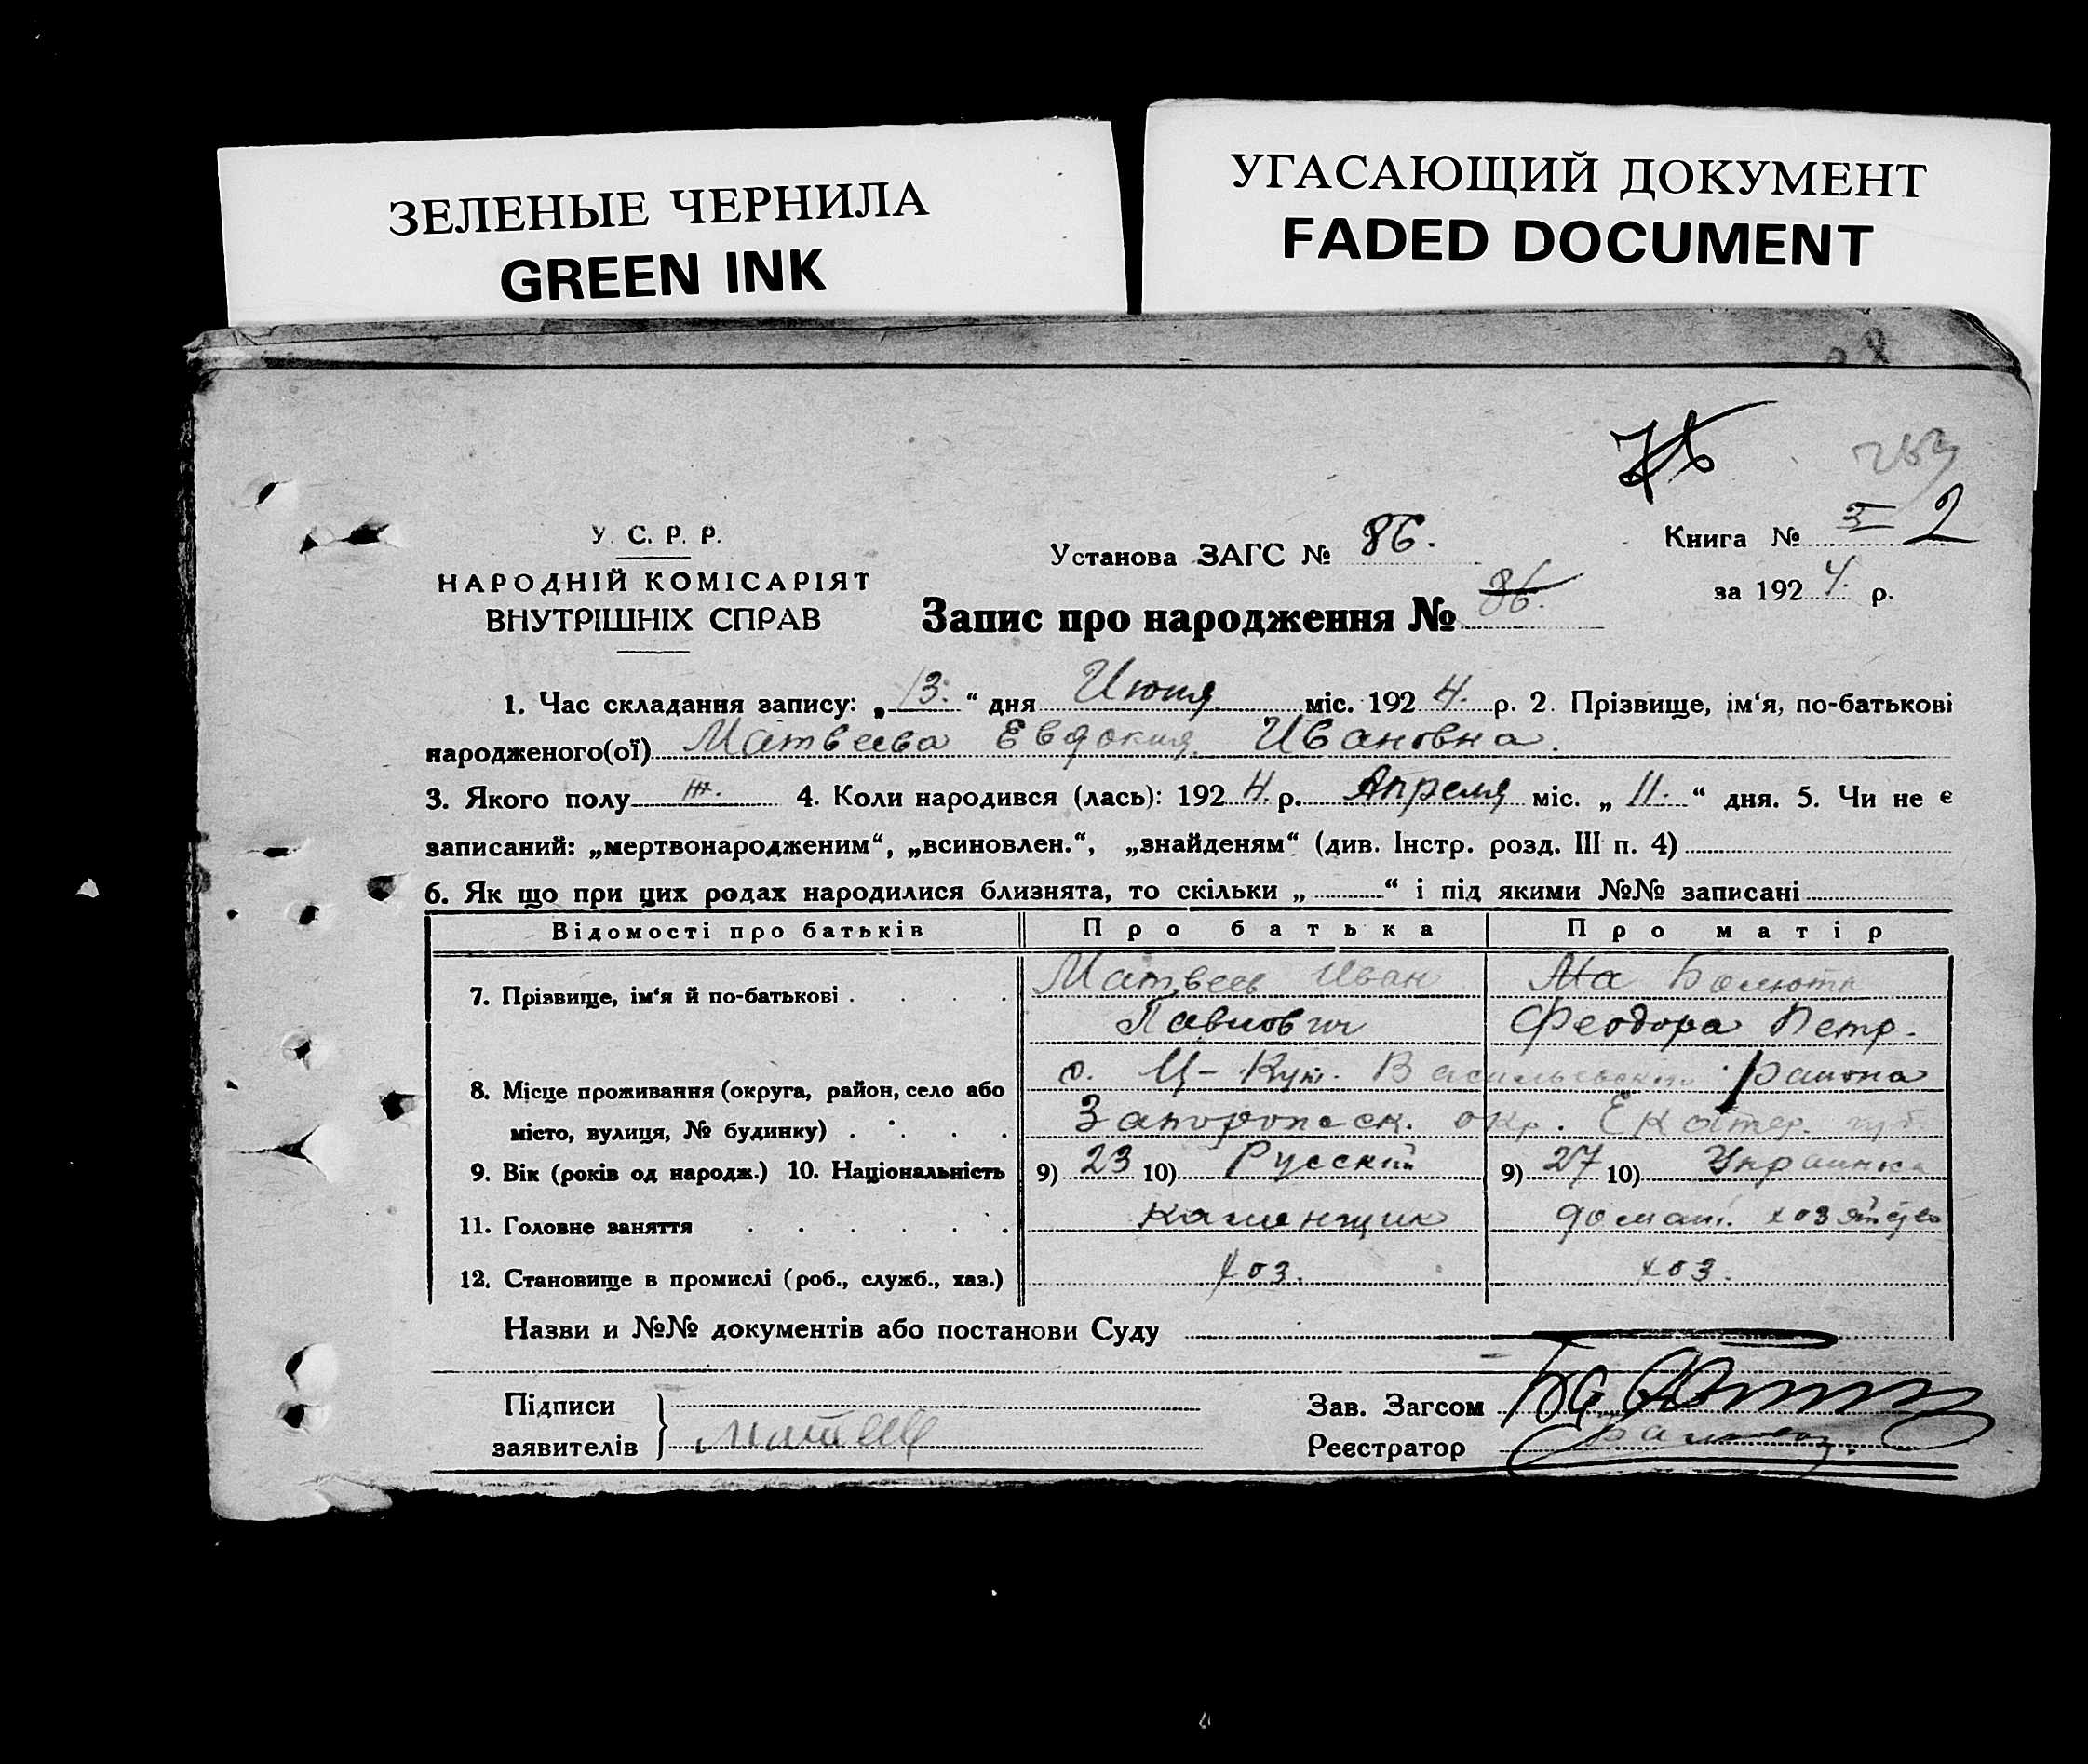 ЗЕЛЕНЫЕ ЧЕРНИЛА
GREEN INK
УГАСАЮЩИЙ ДОКУМЕНТ
FADED DOCUMENT
У. С. Р. Р.
НАРОДНІЙ КОМІСАРІЯТ
ВНУТРІШНІХ СПРАВ
Установа ЗАГС № 86.
Книга № 2
за 1924. р.
Запис про народження № 86.
1. Час складання запису: „13.“ дня Июня міс. 1924. р. 2. Прізвище, ім‘я, по-батькові
народженого(ої) Матвеева Евдокия Ивановна.
3. Якого полу ж. 4. Коли народився (лась): 1924. р. Апреля міс. „11.“ дня. 5. Чи не є
записаний: „мертвонародженим“, „всиновлен.“, „знайденям“ (див. Інстр. розд. III п. 4)
6. Як що при цих родах народилися близнята, то скільки „ “ і під якими №№ записані
Відомості про батьків Про батька Про матір
7. Прізвище, ім‘я й по-батькові . . . . Матвеев Иван Павлович Ма Феодора Петр.
8. Місце проживання (округа, район, село або
місто, вулиця, № будинку) . . . .
с. Ц-Кут. Васильевского района
Запорожск. окр. Екатер. губ
9. Вік (років од народж.) 10. Національність 9) 23 10) Русский 9) 27 10) Украинка
11. Головне заняття . . . . . . каменщик домаш. хозяйство
12. Становище в промислі (роб., служб., хаз.) хоз. хоз.
Назви и №№ документів або постанови Суду
Підписи
заявителів
Зав. Загсом
Реєстратор